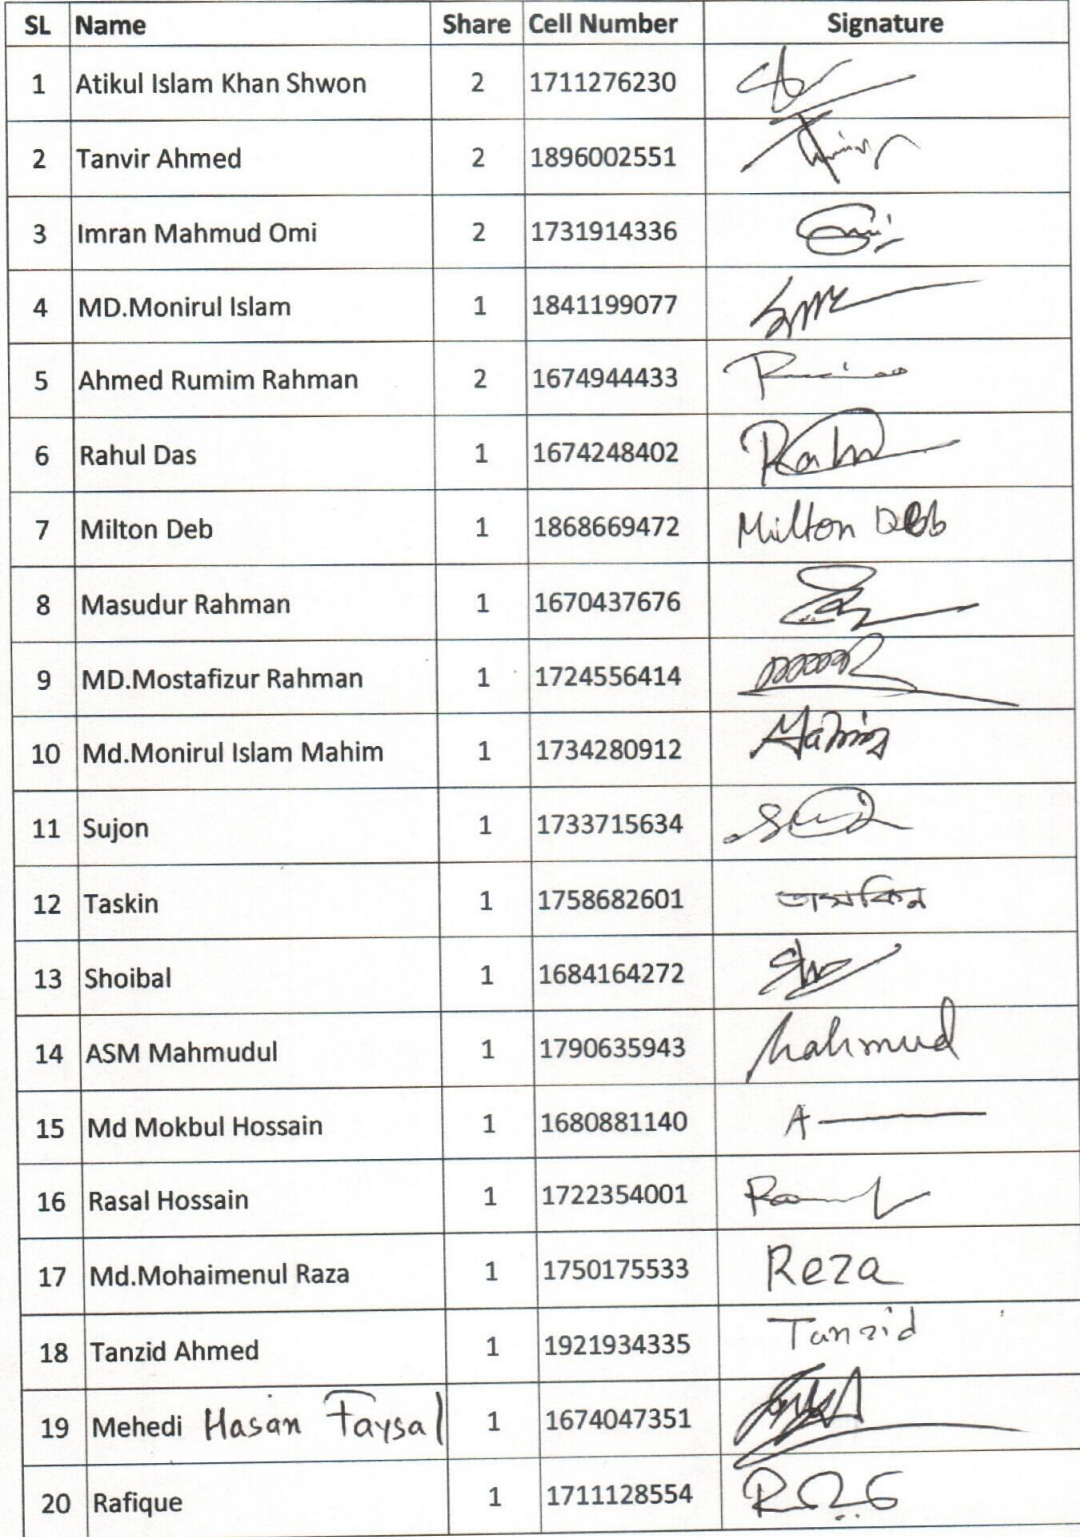 SL Name Share Cell Number Signature
1 Atikul Islam Khan Shwon 2 1711276230
2 Tanvir Ahmed 2 1896002551
3 Imran Mahmud Omi 2 1731914336
4 MD.Monirul Islam 1 1841199077
5 Ahmed Rumim Rahman 2 1674944433
6 Rahul Das 1 1674248402
7 Milton Deb 1 1868669472 Milton Deb
8 Masudur Rahman 1 1670437676
9 MD.Mostafizur Rahman 1 1724556414
10 Md.Monirul Islam Mahim 1 1734280912 Mahim
11 Sujon 1 1733715634
12 Taskin 1 1758682601 তাসকিন
13 Shoibal 1 1684164272
14 ASM Mahmudul 1 1790635943 Mahmud
15 Md Mokbul Hossain 1 1680881140
16 Rasal Hossain 1 1722354001
17 Md.Mohaimenul Raza 1 1750175533 Reza
18 Tanzid Ahmed 1 1921934335 Tanzid
19 Mehedi Hasan Faysal 1 1674047351
20 Rafique 1 1711128554